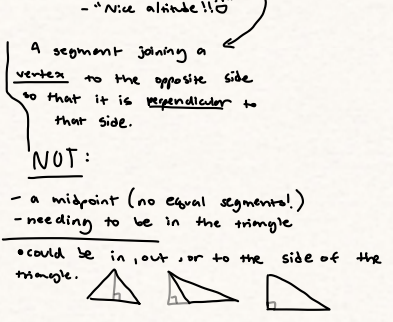 - "Nice altitude!!
A segment joining a
vertex to the opposite side
so that it is perpendicular to
that side.
NOT:
- a midpoint (no equal segments!)
- needing to be in the triangle
• could be in, out, or to the side of the
triangle.